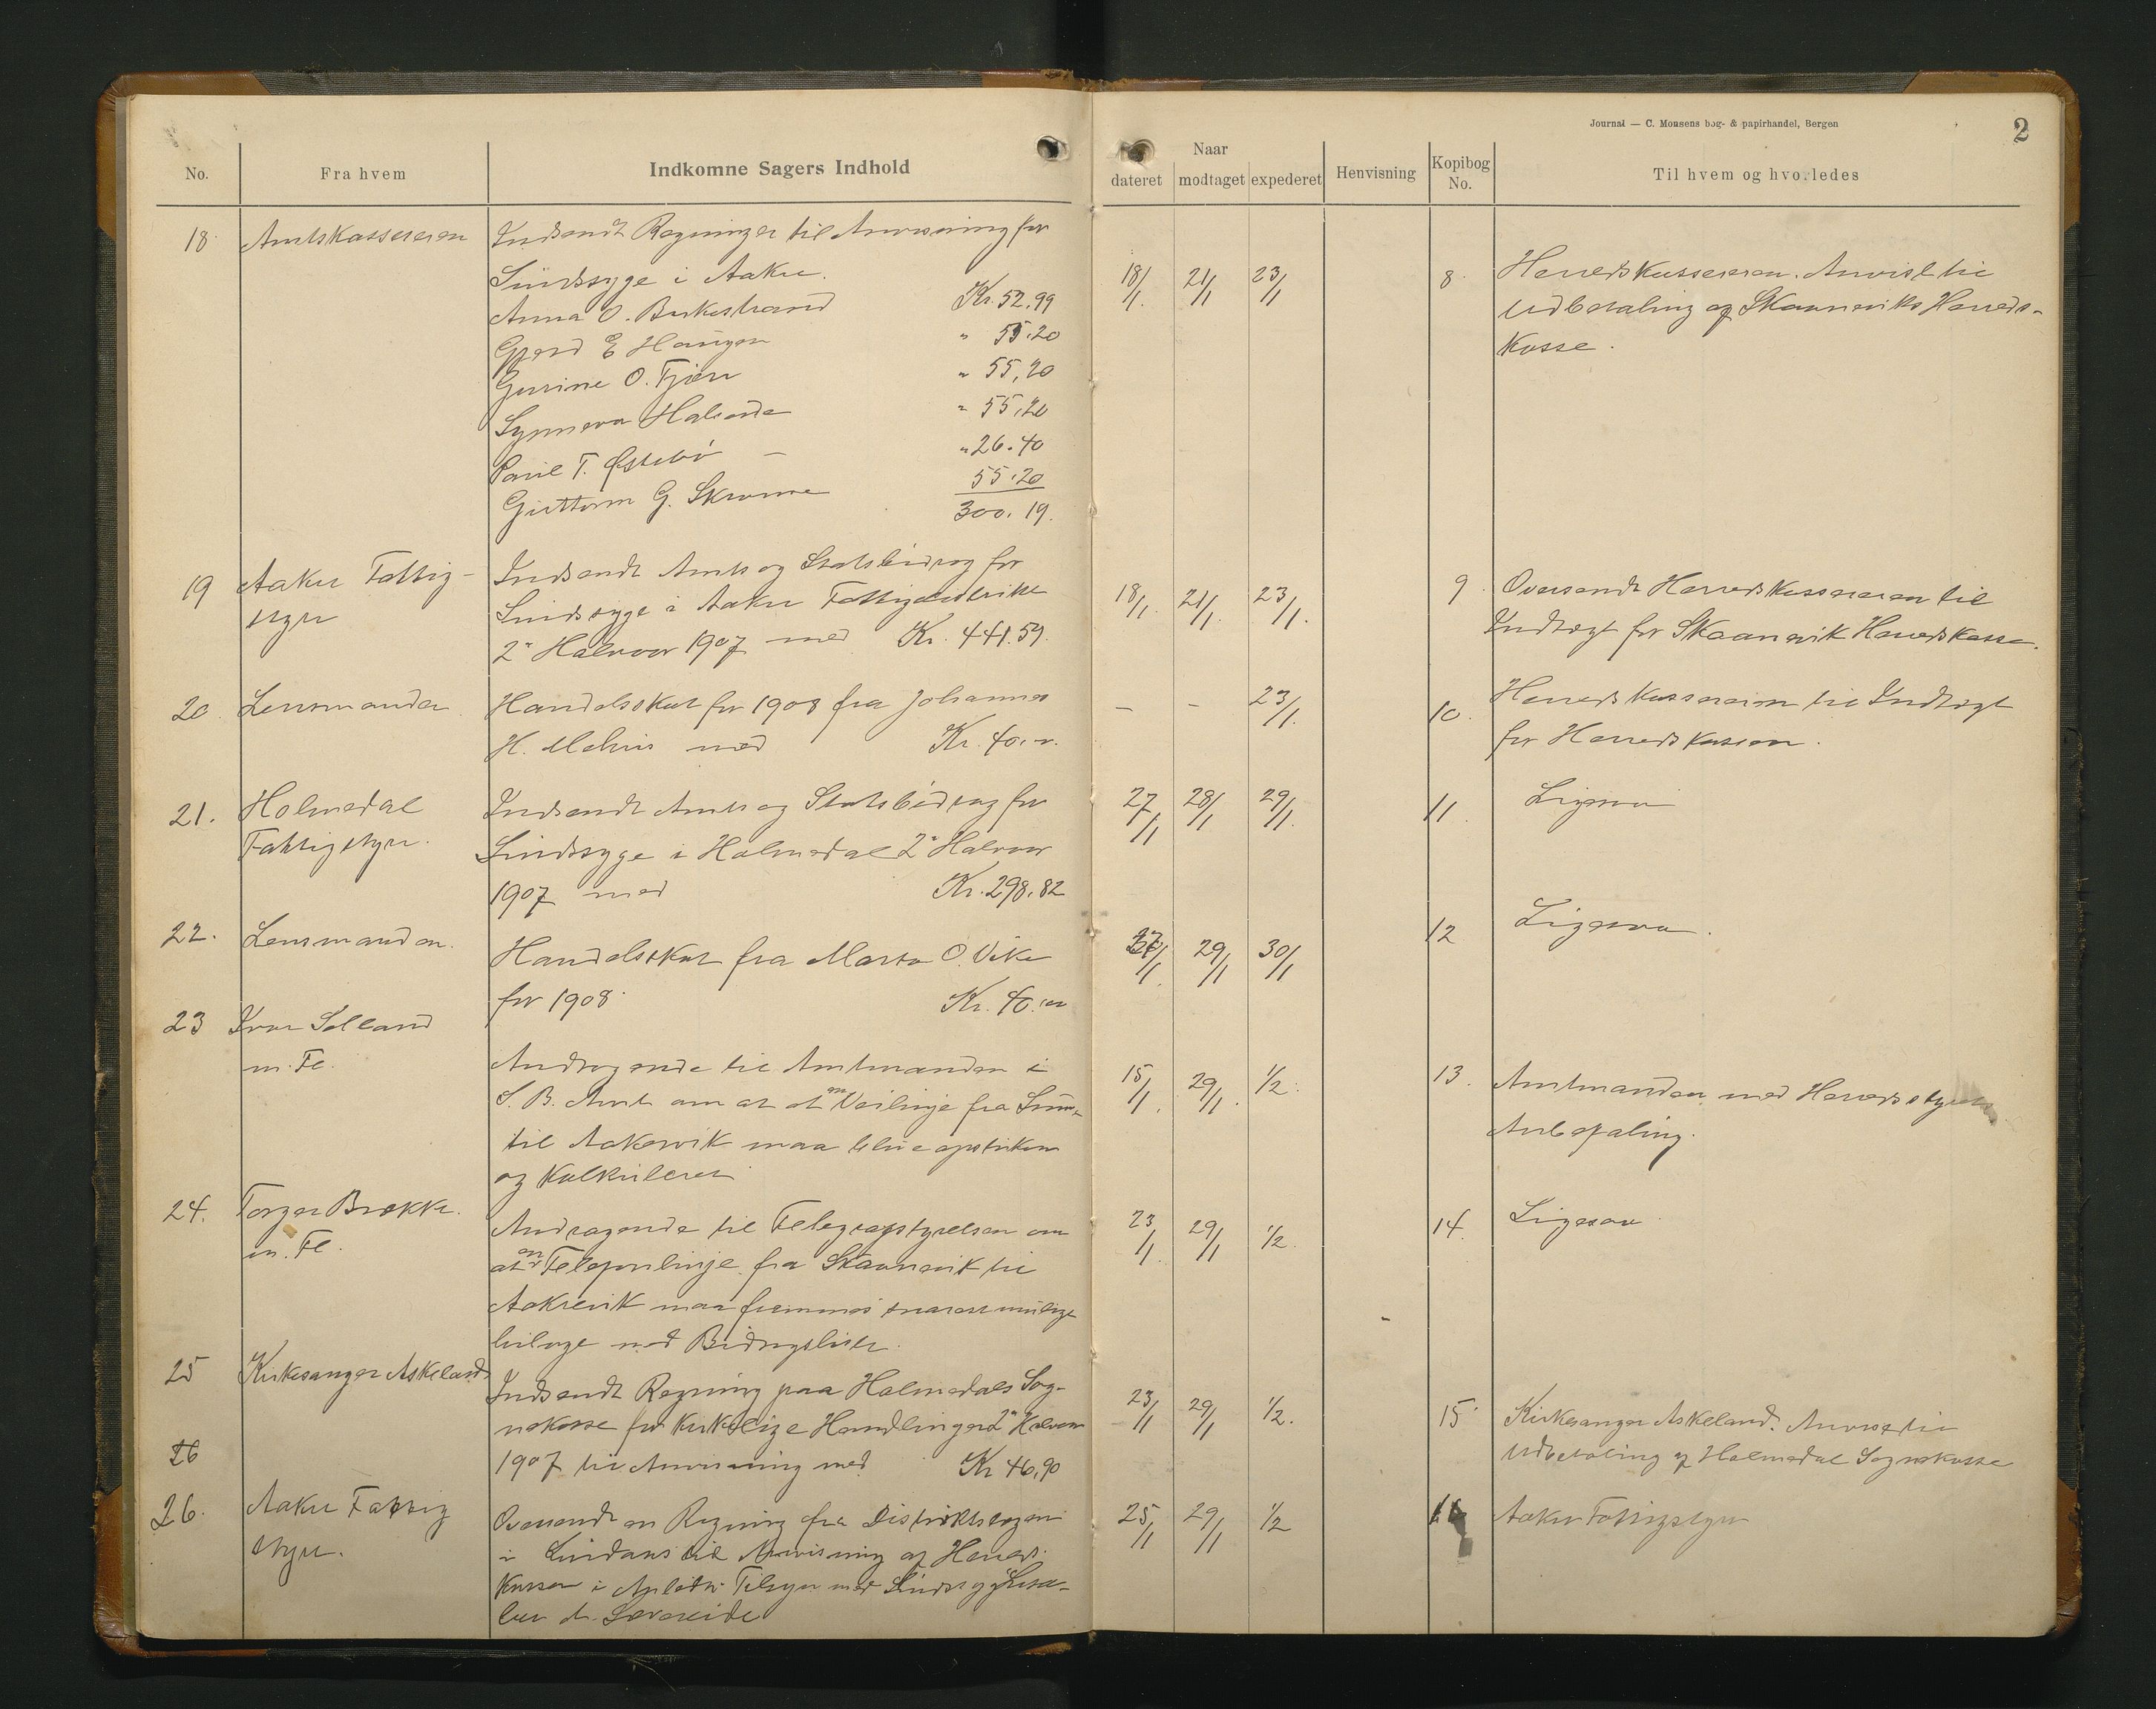 Journal — C. Monsens bog- & papirhandel, Bergen
2
No.
Fra hvem
Indkomne Sagers Indhold
Naar
dateret
modtaget
expederet
Henvisning
Kopibog
No.
Til hvem og hvorledes
18 Amtskassereren Indsendt Regninger til Anvisning for
Sindssyge i Aakre.
Anna O. Birkestrand Kr. 52.99
Gjerd E Haugen " 55.20
Gurine O. Fjære " 55,20
Synneva Halsnæs " 55.20
Paul T. Østebö — " 26.40
Guttorm G. Skromme 55.20
300.19.
18/1. 21/1 23/1 8. Herredskassereren. Anvist til
Udbetaling af Skaaneviks Herreds-
Kasse.
19 Aakre Fattig- Indsendt Amts og Statsbidrag for
styre Sindssyge i Aakre Fattigdistrikt
2det Halvaar 1907 med Kr. 441.59.
18/1. 21/1. 23/1. 9 Oversendt Herredskassereren til
Indtægt for Skaanevik Herredskasse.
20 Lensmanden Handelsskat for 1908 fra Johannes
H. Mehus med Kr. 40.-.
– – 23/1. 10. Herredskassereren til Indtægt
for Herredskassen.
21. Holmedal Indsendt Amts og Statsbidrag for
Fattigstyre. Sindssyge i Holmedal 2det Halvaar
1907 med Kr. 298.82
27/1 28/1 29/1. 11. Ligesaa
22. Lensmanden. Handelsskat fra Marta O. Vike
for 1908. Kr. 40.00
27/1. 29/1 30/1 12 Ligesaa.
23 Iver Solland
m. Fl. Andragende til Amtmanden i
S. B. Amt om at en Veilinje fra
til Aakrevik maa blive opstukken
og kalkuleret
15/1. 29/1. 1/2. 13. Amtmanden med Herredsstyrets
Anbefaling.
24. Torger Brekke.
m. Fl. Andragende til Telegrafstyrelsen om
at en Telefonlinje fra Skaanevik til
Aakrevik maa fremmes snarest muligt
bilagt med Bidragsliste.
23/1. 29/1 1/2. 14. Ligesaa
25 Kirkesanger Askeland Indsendt Regning paa Holmedals Sog-
nekasse for Kirkelige Handlinger 2det Halvaar
1907 til Anvisning med Kr 46,90
23/1 29/1 1/2. 15 Kirkesanger Askeland. Anvist til
Udbetaling af Holmedal Sognekasse
26
26. Aakre Fattig Oversendt en Regning fra Distriktslægen
styre. i til Anvisning af Herreds-
kassen i Tilsyn med
25/1 29/1 1/2 16 Aakre Fattigstyre